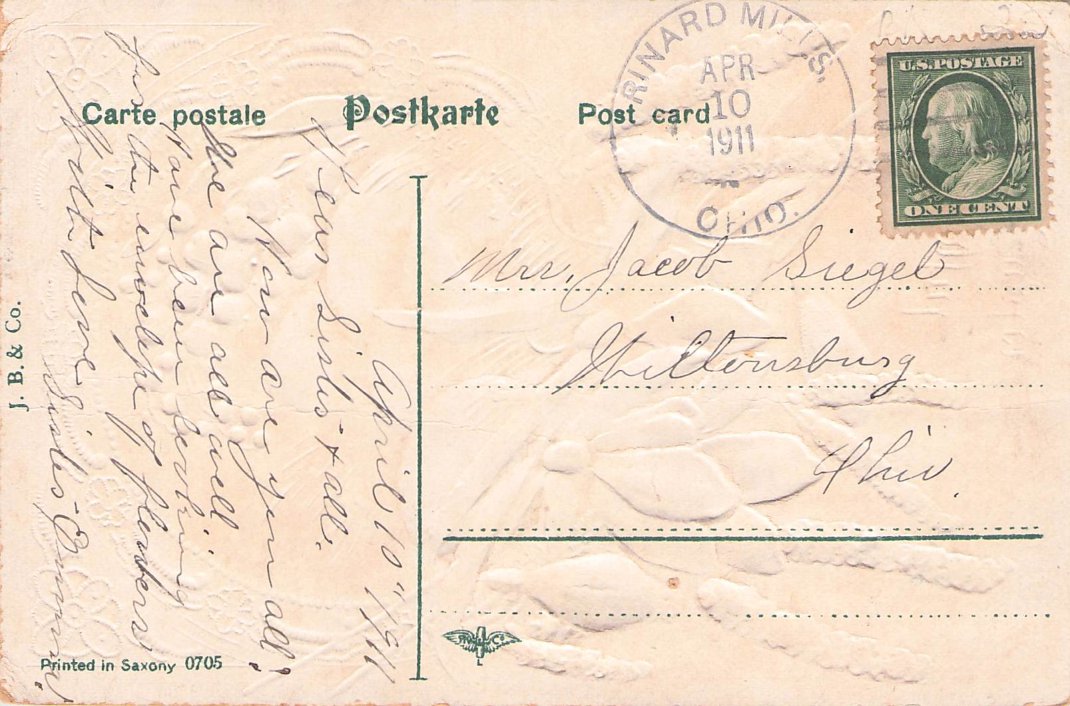 Carte postale
Postkarte
Post card
RINARD MILLS,
APR
10
1911
OHIO.
U.S. POSTAGE
ONE CENT
Mrs. Jacob Siegel
Wiltonsburg
Ohio.
April 10" 1911
Dear Sister & all.
How are you all?
We are all well
have been looking
for the envelope of flowers
With Love Sister Emma.
J. B. & Co.
Printed in Saxony 0705